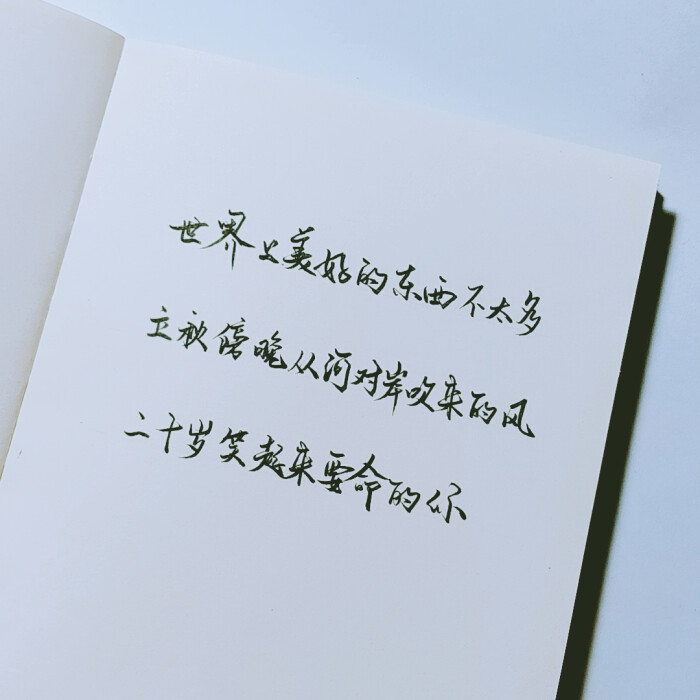 世界上美好的东西不太多
立秋傍晚从河对岸吹来的风
二十岁笑起来要命的你